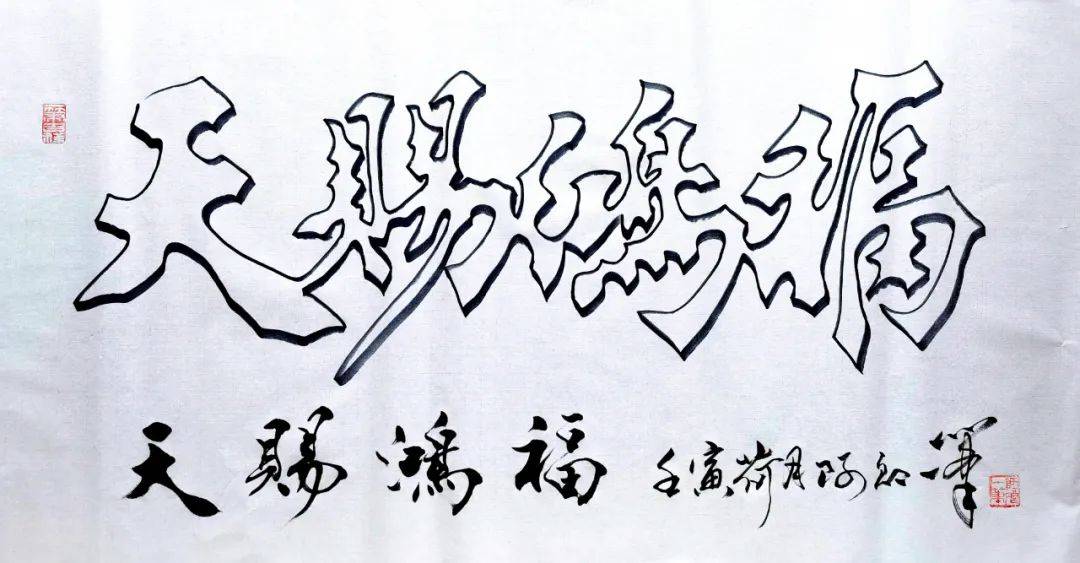 天赐鸿福
天赐鸿福 壬寅荷月 笔